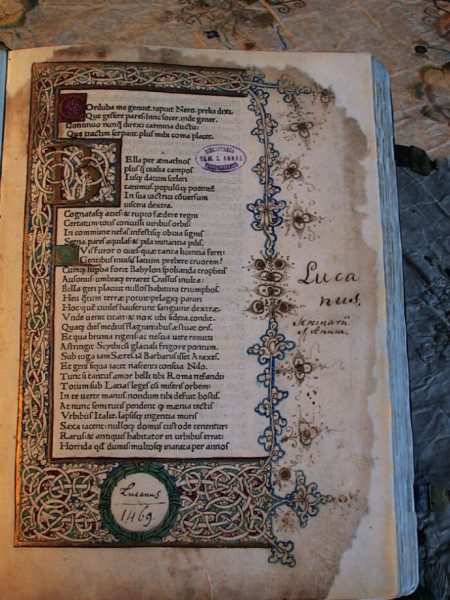 Corduba me genuit. rapuit Nero. prelia dixi.
Que gessere pares: hinc socer. inde gener.
Continuo nunq̃ direxi carmina ductu:
Que tractim serpant. plus mihi coma placet.
BIBLIOTHECA
SEM. S. ANNAE
Bella per æmathios
plus q̃ civilia campos
Iusq; datum sceleri
canimus. populũq; potentẽ
In sua victrici cõuersum
uiscera dextra.
Cognatasq; acies: & rupto fœdere regni
Certatum: totis concussi uiribus orbis:
In commune nefas. infestisq; obuia signis
Signa. pares aquilas: & pila minantia pilis.
Quis furor o ciues: quæ tanta licentia ferri:
Gentibus inuisis latium prebere cruorem?
Cumq; supba foret Babylon spolianda tropheis
Ausonius. umbraq; erraret Crassus inulta:
Bella geri placuit nullos habitura triumphos.
Heu q̃tum terræ potuit pelagiq; parari
Hoc quẽ ciuiles hauserunt sanguine dextræ.
Vnde uenit titan: & nox ubi sidera condit.
Quaq; dies medius flagrantibus æstuat oris.
Et qua bruma rigens: ac nescia uere remitti
Astringit Scythicũ glaciali frigore pontum.
Sub iuga iam Særes. iã Barbarus isset Araxes.
Et gens siqua iacet nascenti conscia Nilo.
Tunc si tantus amor belli tibi Roma nefandi:
Totum sub Latias leges cũ miseris orbem:
In te uerte manus. nondum tibi defuit hostis.
At nunc semirutis pendent q̃ mœnia tectis
Vrbibus Italiæ. lapsisq; ingentia muris
Saxa iacent: nulloq; domus custode tenentur:
Rarus & antiquis habitator in urbibus errat:
Horrida q̃d dumis: multosq; inarata per annos
Luca
nus.
Seminarii
S. Annae.
Lucanus
1469